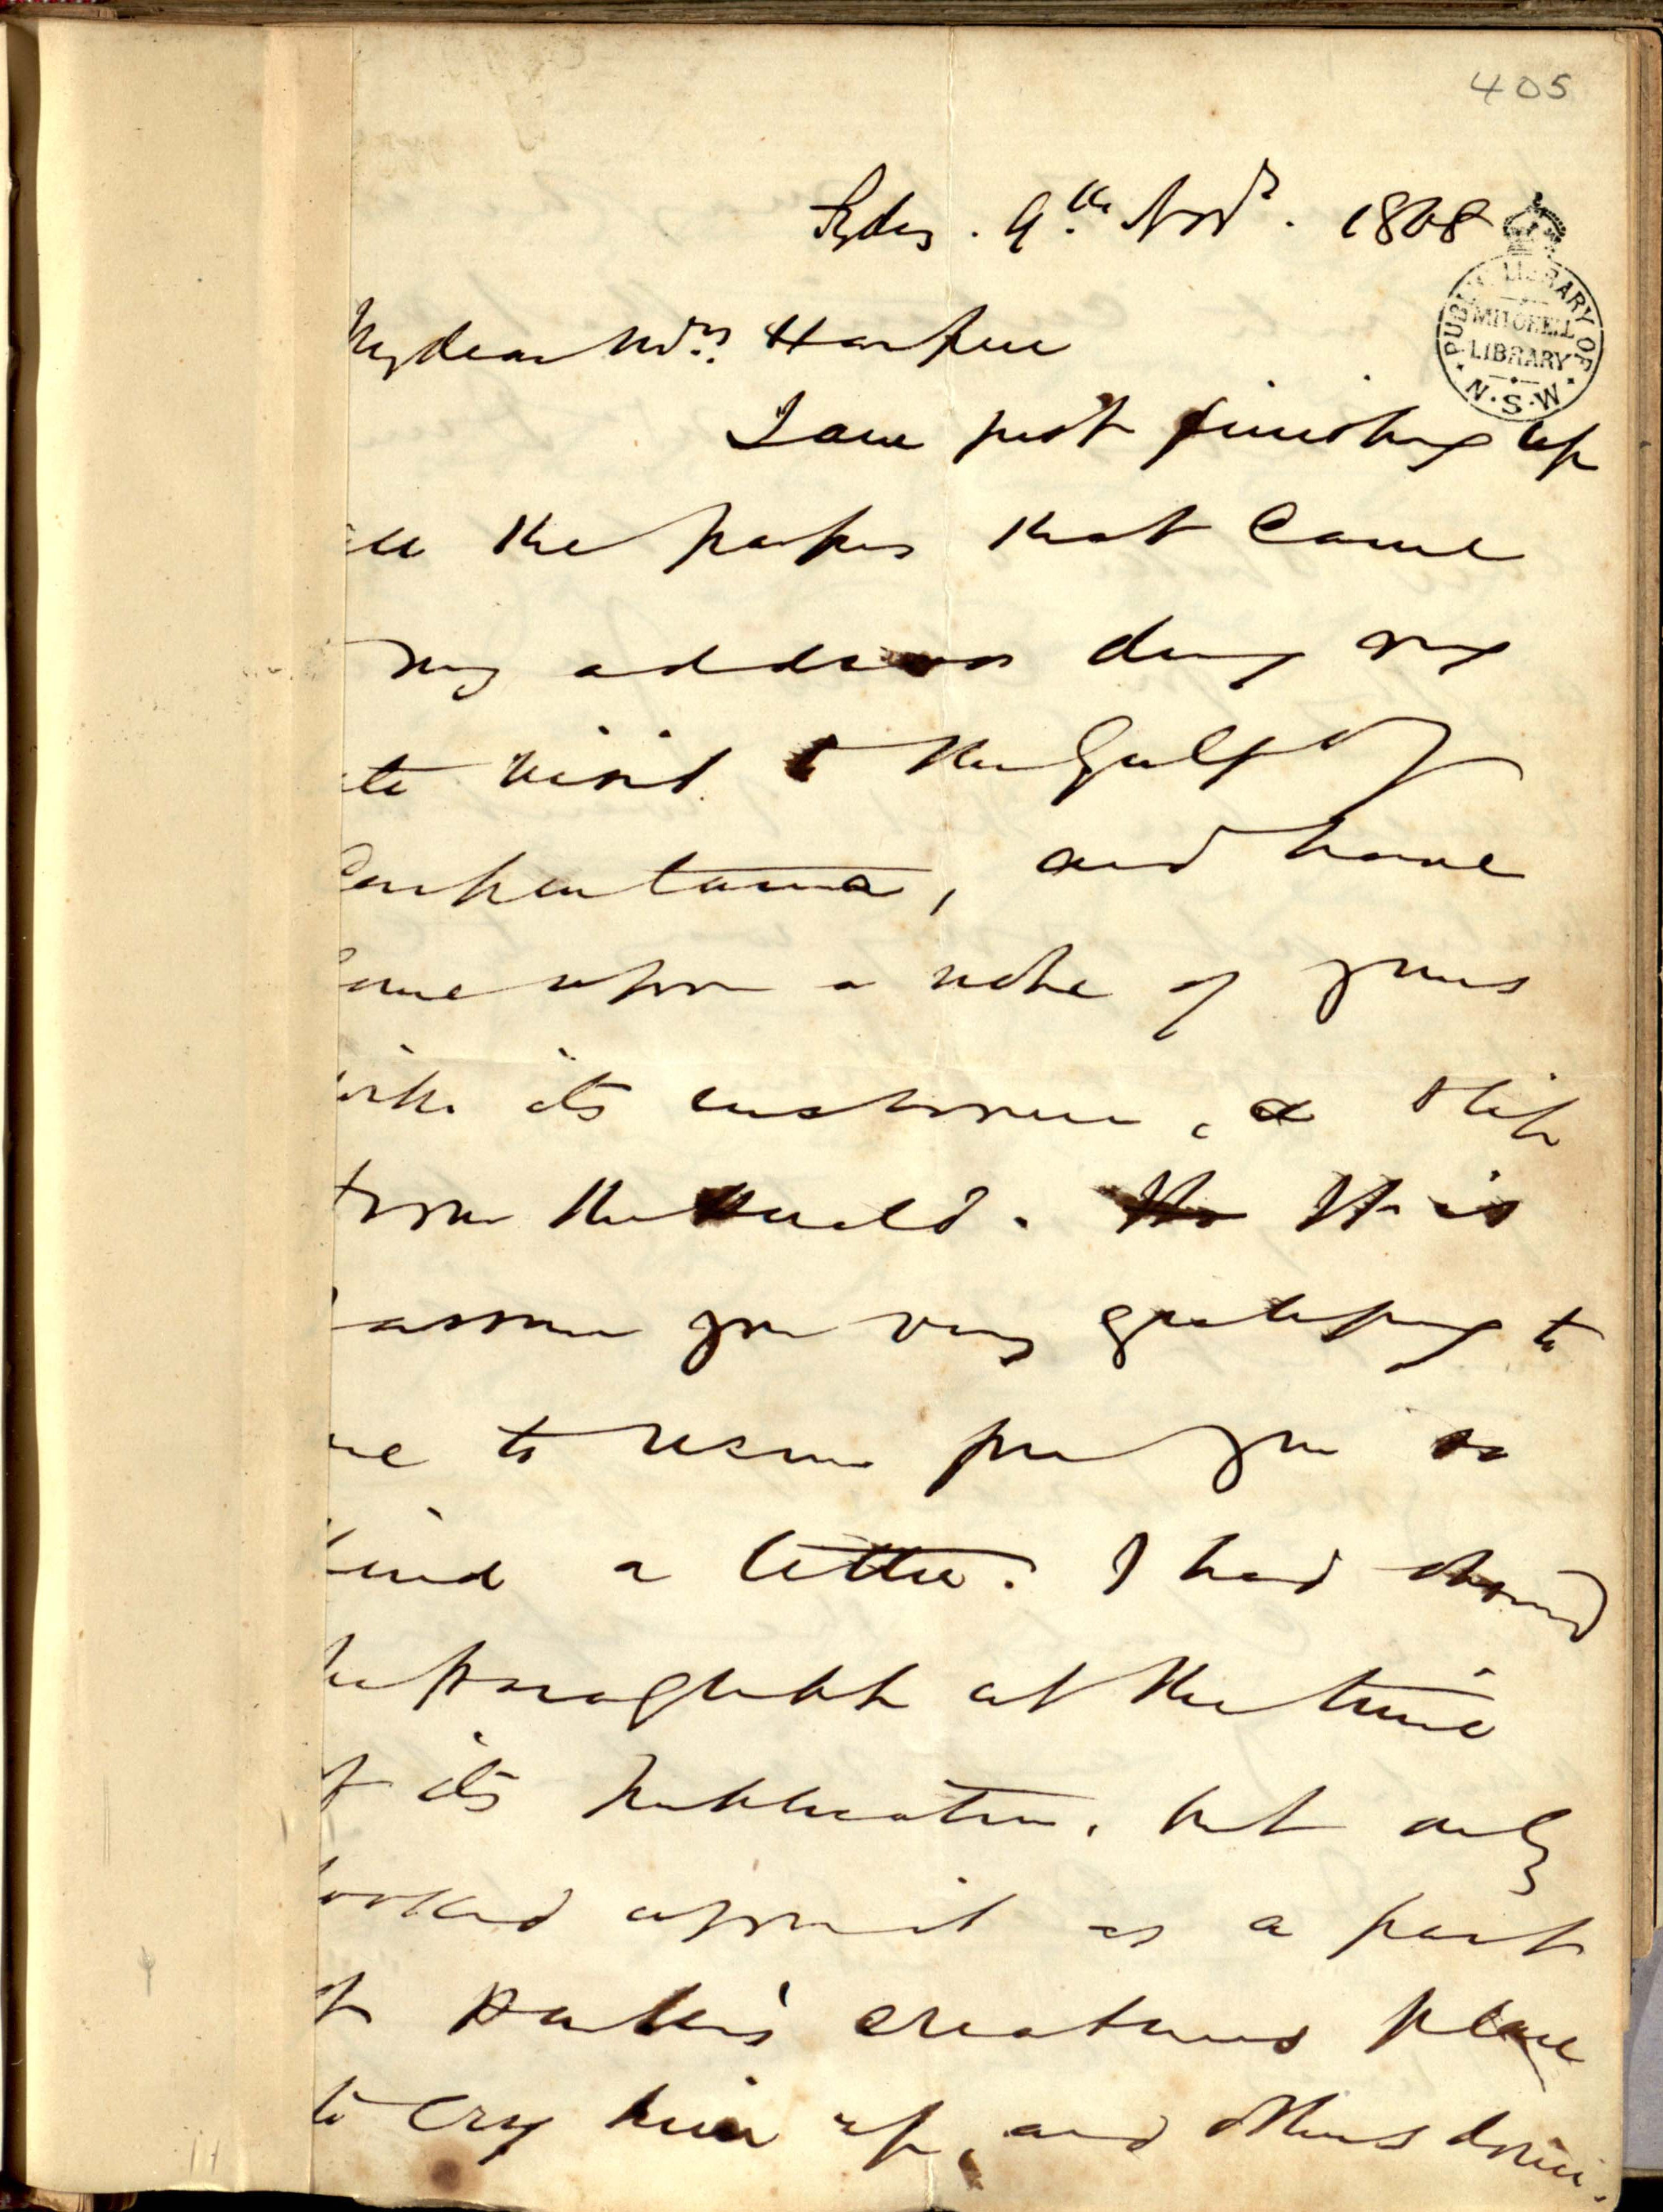 405
Sydey. 9.th Novr. 1868
PUBLIC LIBRARY OF N.S.W
MITCHELL LIBRARY
My dear Mrs. Harpur
I am just finishing up
all the papers that came
my address during my
late visit to the Gulf of
Carpentaria, and have
come upon a note of yours
with its enclosure, a slip
from the Herald. It is
I assure you very gratifying to
me to receive from you so
kind a letter. I had observed
the paragraph at the time
of its publication, but only
looked upon it as a part
of Parkes' creatures place
to cry him up, and others down.